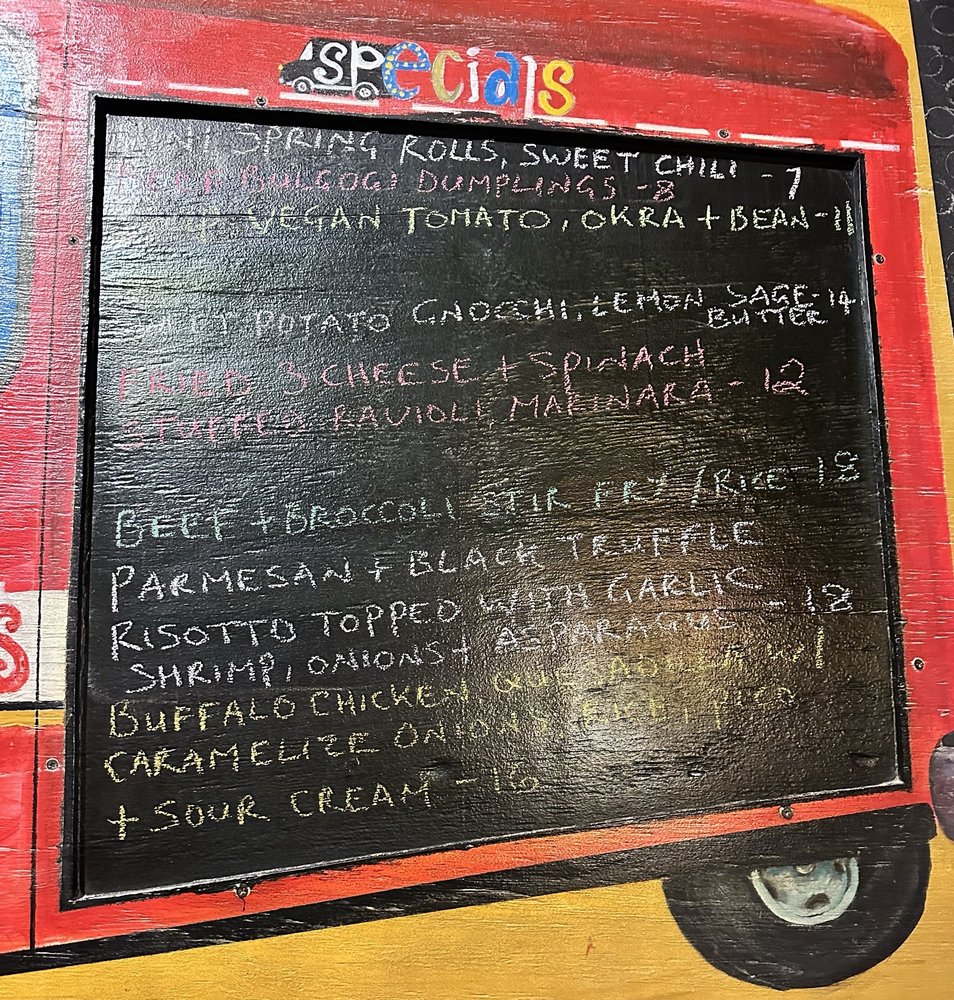 SPecials
SPRING ROLLS, SWEET CHILI - 7
BEEF BULGOGI DUMPLINGS - 8
VEGAN TOMATO, OKRA + BEAN - 11
POTATO GNOCCHI, LEMON SAGE - 14
BUTTER
FRIED 3 CHEESE + SPINACH
STUFFED RAVIOLI, MARINARA - 12
BEEF + BROCCOLI STIR FRY / RICE - 18
PARMESAN + BLACK TRUFFLE
RISOTTO TOPPED WITH GARLIC
SHRIMP, ONIONS + ASPARAGUS - 18
BUFFALO CHICKEN QUESADILLA W/
CARAMELIZE ONIONS, RICE, PICO
+ SOUR CREAM - 16
S